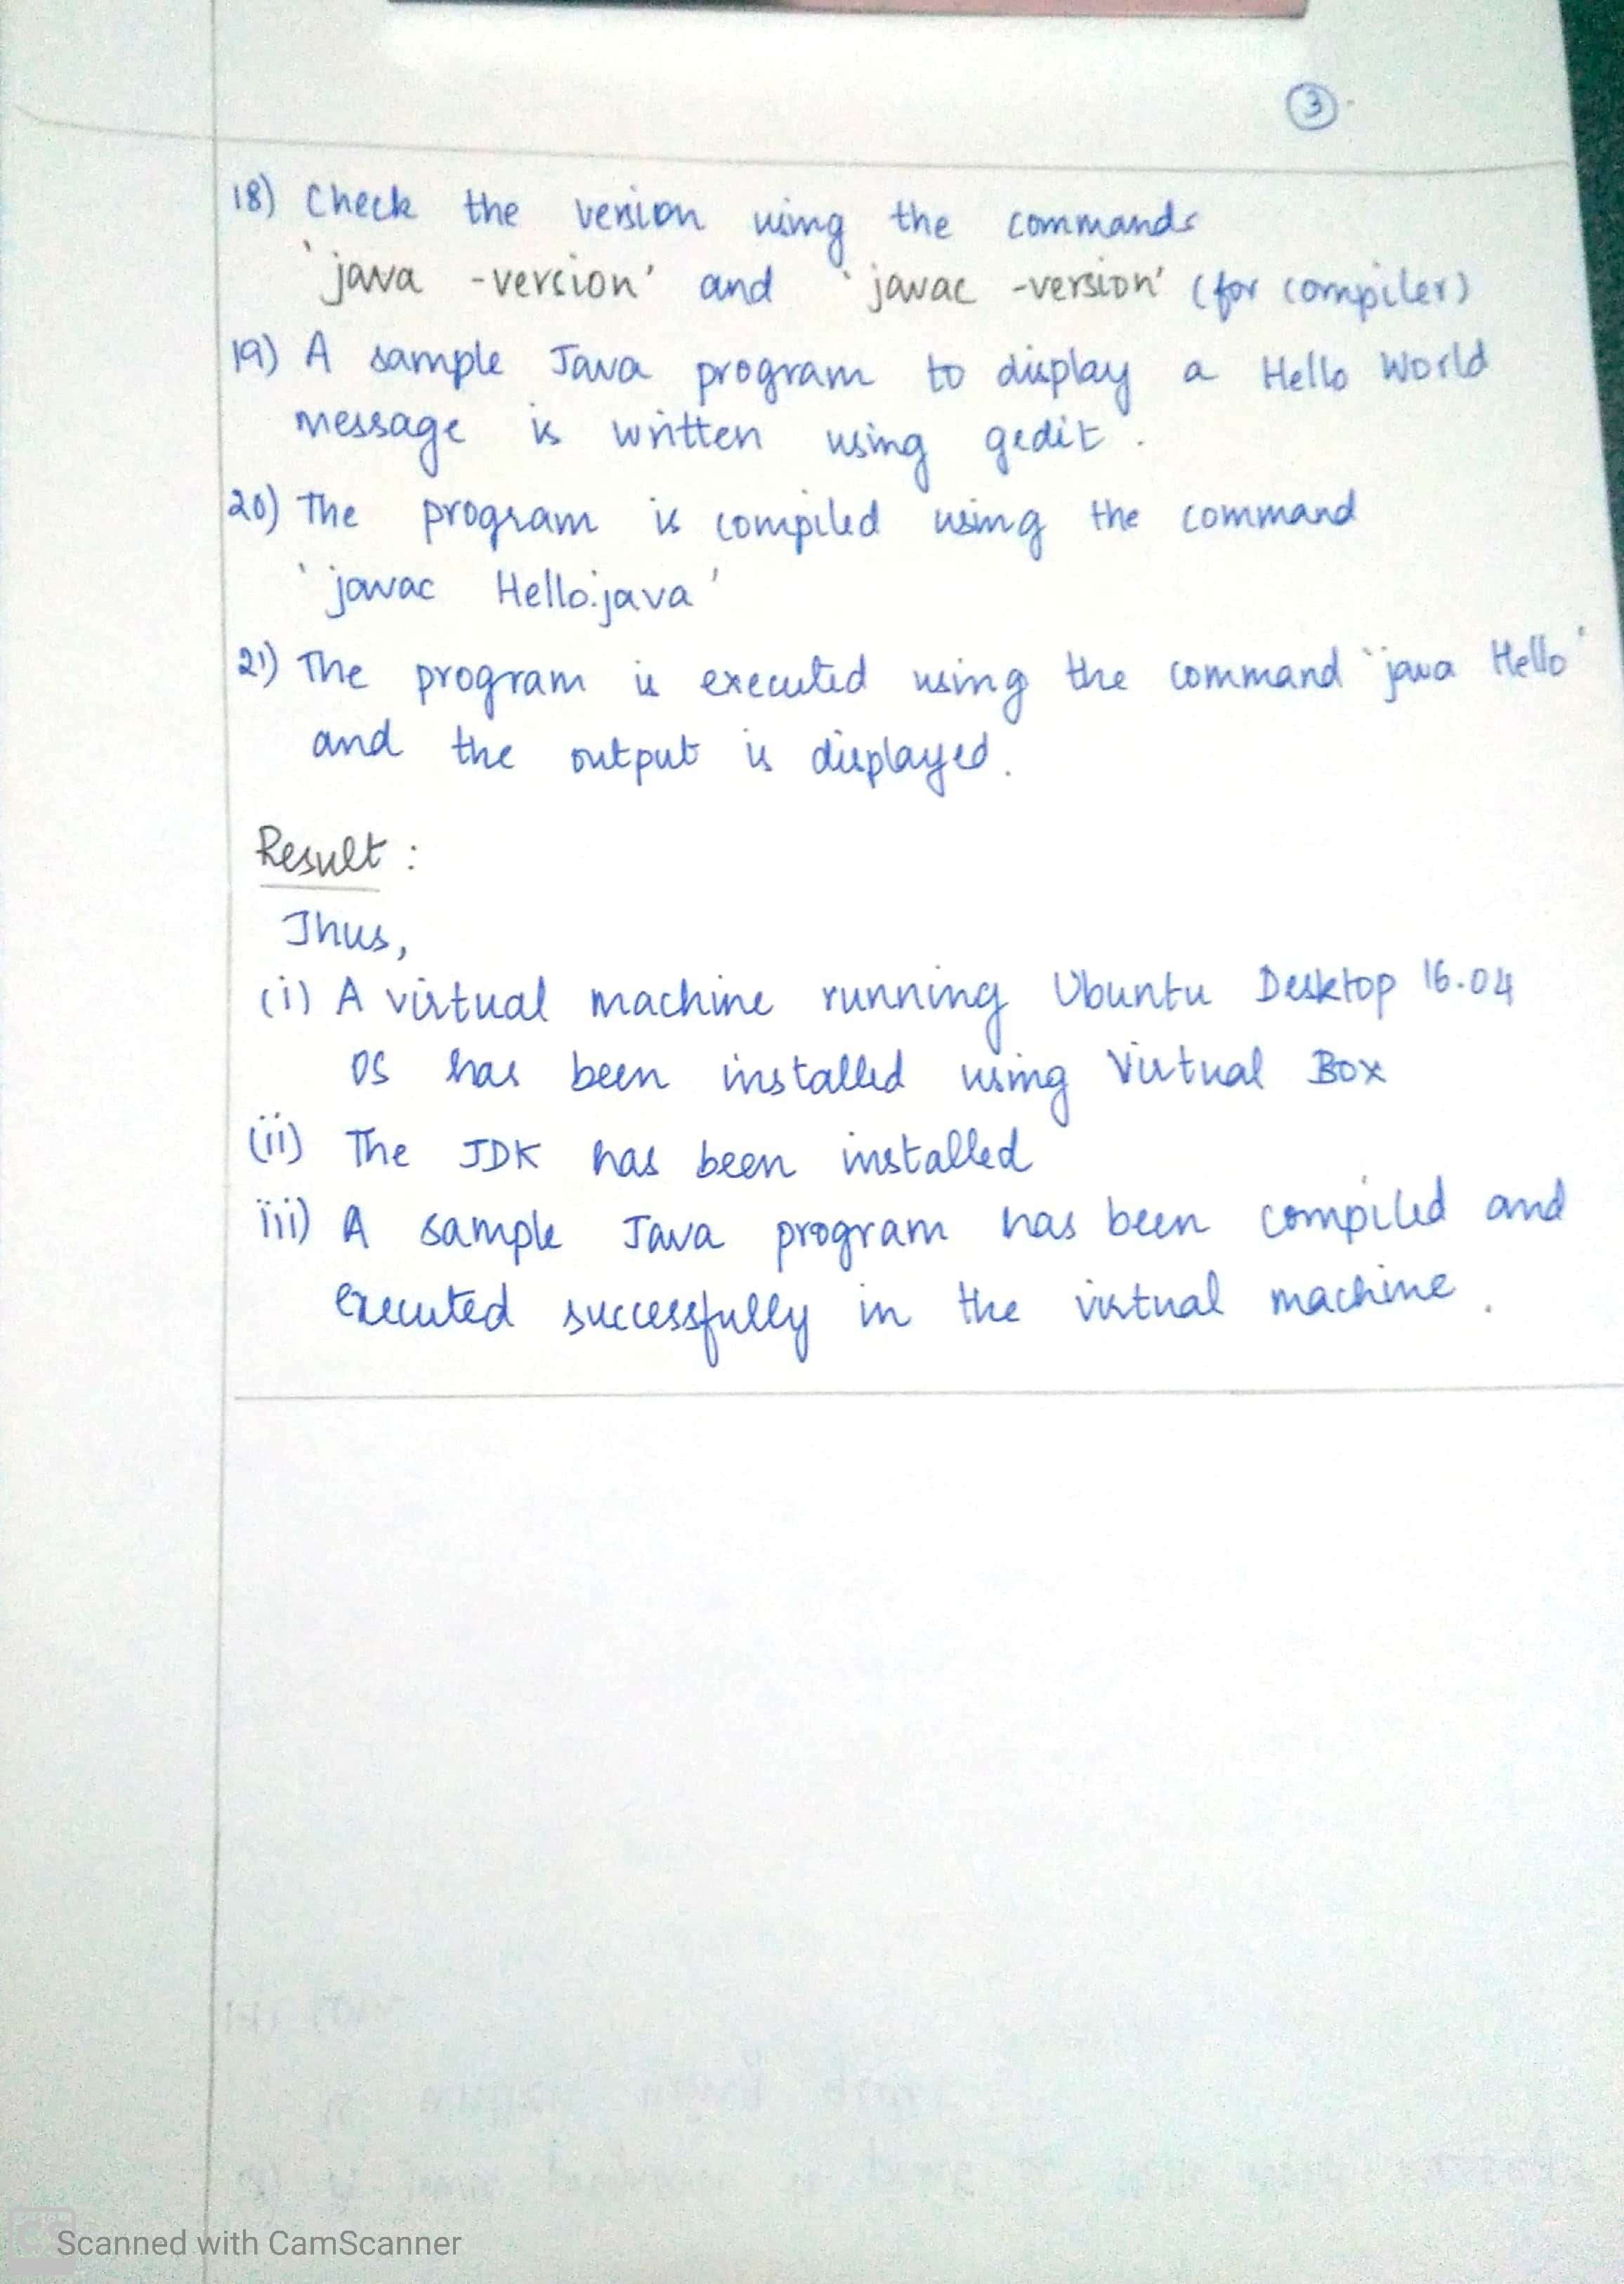 3
18) Check the version using the commands
'java -version' and 'javac -version' (for compiler)
19) A sample Java program to display a Hello World
message is written using gedit.
20) The program is compiled using the command
'javac Hello.java'
21) The program is executed using the command 'java Hello'
and the output is displayed.
Result :
Thus,
(i) A virtual machine running Ubuntu Desktop 16.04
OS has been installed using Virtual Box
(ii) The JDK has been installed
iii) A sample Java program has been compiled and
executed successfully in the virtual machine.
CS Scanned with CamScanner